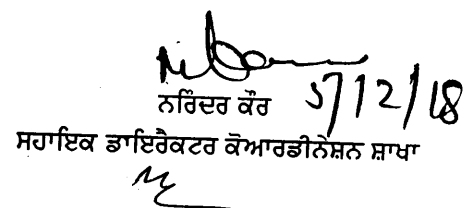 ਨਰਿੰਦਰ ਕੌਰ 5/12/18
ਸਹਾਇਕ ਡਾਇਰੈਕਟਰ ਕੋਆਰਡੀਨੇਸ਼ਨ ਸ਼ਾਖਾ